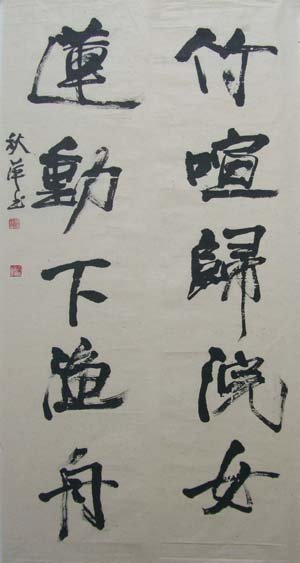 竹喧歸浣女
蓮動下漁舟
秋萍书